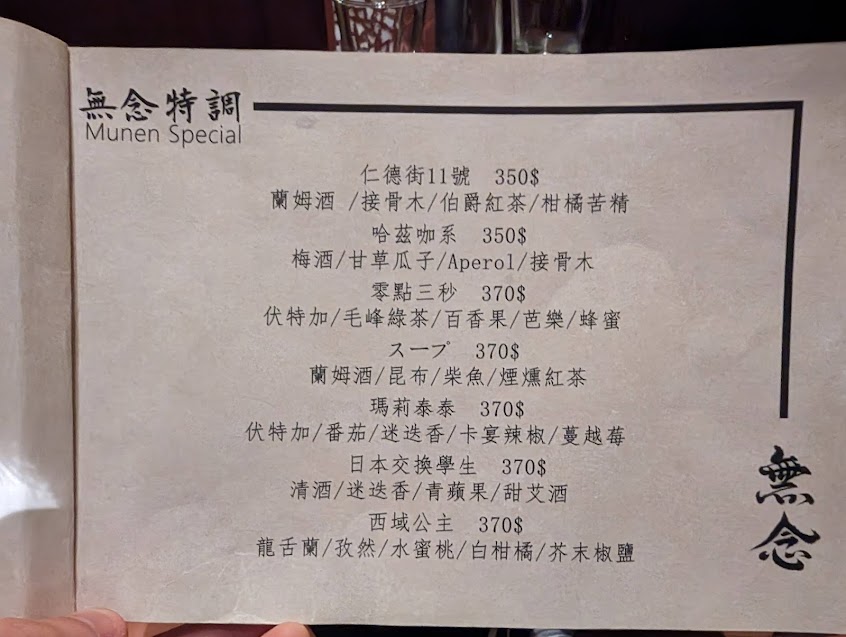 無念特調
Munen Special
仁德街11號 350$
蘭姆酒 /接骨木/伯爵紅茶/柑橘苦精
哈茲咖系 350$
梅酒/甘草瓜子/Aperol/接骨木
零點三秒 370$
伏特加/毛峰綠茶/百香果/芭樂/蜂蜜
スープ 370$
蘭姆酒/昆布/柴魚/煙燻紅茶
瑪莉泰泰 370$
伏特加/番茄/迷迭香/卡宴辣椒/蔓越莓
日本交換學生 370$
清酒/迷迭香/青蘋果/甜艾酒
西域公主 370$
龍舌蘭/孜然/水蜜桃/白柑橘/芥末椒鹽
無念